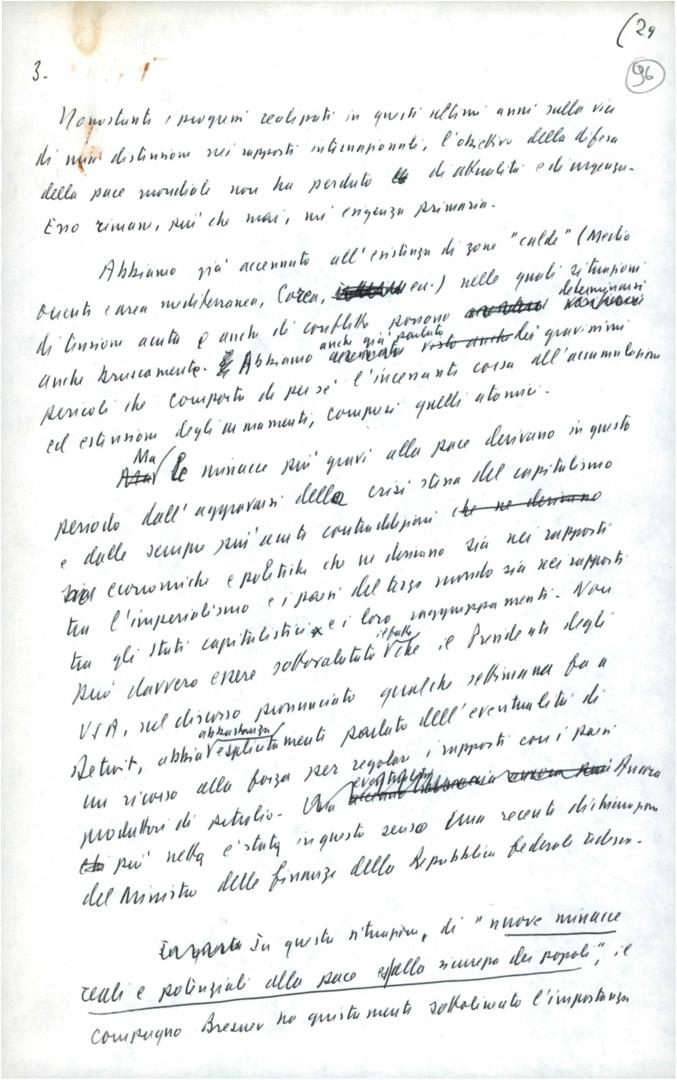 (29
96
3.
Nonostante i progressi realizzati in questi ultimi anni sulla via
di una distensione nei rapporti internazionali, l'obiettivo della difesa
della pace mondiale non ha perduto di attualità e di urgenza.
Esso rimane, più che mai, un'esigenza primaria.
Abbiamo già accennato all'esistenza di zone "calde" (Medio
oriente e area mediterranea, Corea, ecc.) nelle quali situazioni
di tensione acuta e anche di conflitto possono determinarsi
anche bruscamente. Abbiamo anche già parlato dei gravissimi
pericoli che comporta di per sé l'incessante corsa all'accumulazione
ed estensione degli armamenti, compresi quelli atomici.
Ma le minacce più gravi alla pace derivano in questo
periodo dall'aggravarsi della crisi stessa del capitalismo
e dalle sempre più acute contraddizioni che ne derivano
economiche e politiche che ne derivano sia nei rapporti
tra l'imperialismo e i paesi del terzo mondo sia nei rapporti
tra gli Stati capitalistici e i loro raggruppamenti. Non
può davvero essere sottovalutato il fatto che il Presidente degli
USA, nel discorso pronunciato qualche settimana fa a
Detroit, abbia abbastanza esplicitamente parlato dell'eventualità di
un ricorso alla forza per regolare i rapporti con i paesi
produttori di petrolio. Ancora
più netta è stata in questo senso una recente dichiarazione
del Ministro delle finanze della Repubblica federale tedesca.
In questa situazione, di "nuove minacce
reali e potenziali alla pace e alla sicurezza dei popoli", il
compagno Breznev ha giustamente sottolineato l'importanza